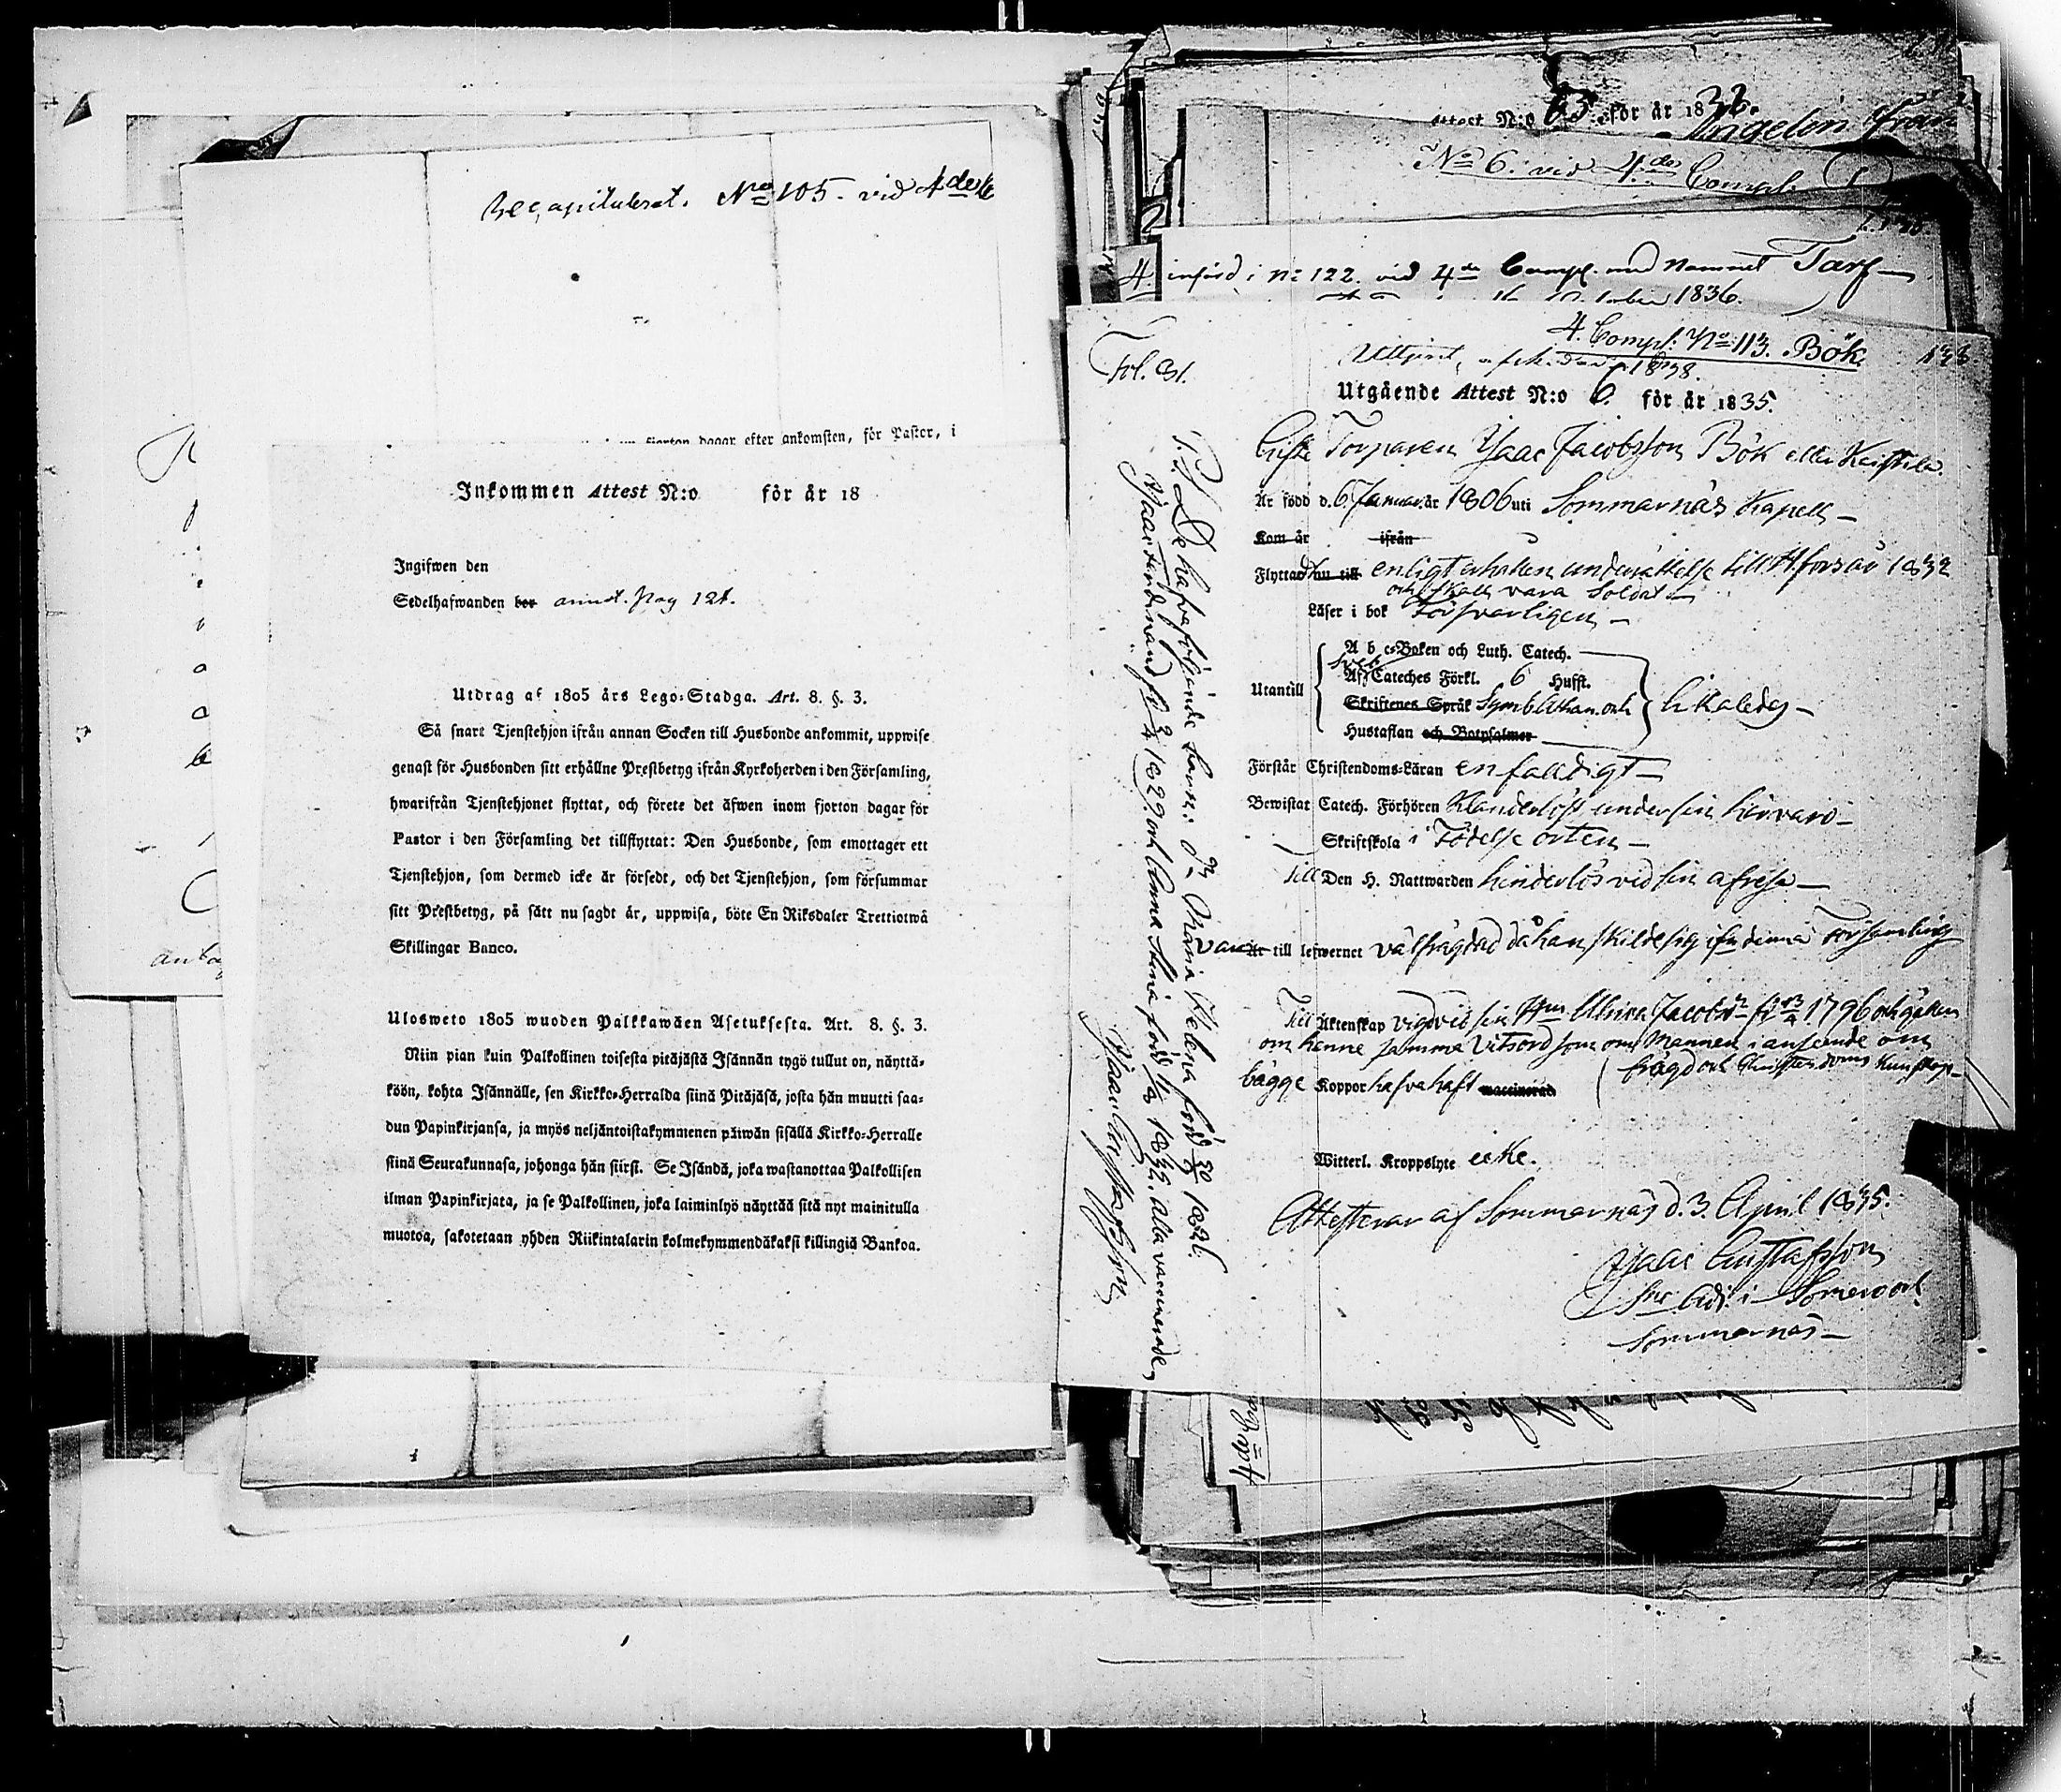 Recapitulerat. No 105. vid 4de
fjorton dagar efter ankomsten, för Pastor, i
Inkommen Attest N:o för år 18
Ingifwen den
Sedelhafwanden bor annot. pag 121.
Utdrag af 1805 års Lego-Stadga. Art. 8. §. 3.
Så snart Tjenstehjon ifrån annan Socken till Husbonde ankommit, uppwise
genast för Husbonden sitt erhållne Prestbetyg ifrån Kyrkoherden i den Församling,
hwarifrån Tjenstehjonet flyttat, och förete det äfwen inom fjorton dagar för
Pastor i den Församling det tillflyttat: Den Husbonde, som emottager ett
Tjenstehjon, som dermed icke är försedt, och det Tjenstehjon, som försummar
sitt Prestbetyg, på sätt nu sagdt är, uppwisa, böte En Riksdaler Trettiotwå
Skillingar Banco.
Ulosweto 1805 wuoden Palkkawäen Asetuksesta. Art. 8. §. 3.
Niin pian kuin Palkollinen toisesta pitäjästä Isännän tygö tullut on, näyttä-
köön, kohta Isännälle, sen Kirkko-Herralda siinä Pitäjäsä, josta hän muutti saa-
dun Papinkirjansa, ja myös neljäntoistakymmenen päiwän sisällä Kirkko-Herralle
siinä Seurakunnasa, johonga hän siirsi. Se Isändä, joka wastanottaa Palkollisen
ilman Papinkirjata, ja se Palkollinen, joka laiminlyö näyttää sitä nyt mainitulla
muotoa, sakotetaan yhden Riikintalarin kolmekymmendäkaksi killingiä Bankoa.
Attest N:o 63 för år 1836.
Angelin från
No 6. vid 4de Compl.
4. införd i No 122. vid 4de Compl. med namnet Tarf
1836.
4. Compl. No 113. Bök
1838.
Fol. 31.
Utgående Attest N:o 6. för år 1835.
Gifte Torparen Isaac Jacobsson Bök eller Keistila.
Är född d. 6 Januari år 1806 uti Sommarnäs Kapell
Kom år ifrån
Flyttade nu till enligt erhallen underrättelse till H.fors år 1832
och skall vara Soldat
Läser i bok Försvarligen
A b c-Boken och Luth. Catech.
Sveb
Af Cateches Förkl. 6 Hufst.
Utantill
Skriftenes Språk Symb. Athan. och likaledes
Hustaflan och Botpsalmer
Förstår Christendoms-Läran enfaldigt
Bewistat Catech. Förhören Klanderlöst under sin härvaro
Skriftskola i Födelse orten
Till Den H. Nattwarden hinderlös vid sin afresa
var Är till lefwernet välfrägdad då han skilde sig ifrn denna Församling
Till Äktenskap vigd vid sin Hu Ulrica Jacobsdr 1796 och gäller
om henne samma Vitsord som om Mannen i anseende om
frägd och Christendoms Kunskap
bägge Koppor hafva haft waccinerad
Witterl. Kroppslyte icke.
Attesterar af Sommarnäs d. 3. April 1835.
Isaac Gustafsson
Adj. i Somero och
Sommarnäs
De hafva följande barn: Maria Helena född 1826.
Isaac Ferdinand 1829. och Anna Stina född 1832. alla vaccinerade
Isaac Gustafsson